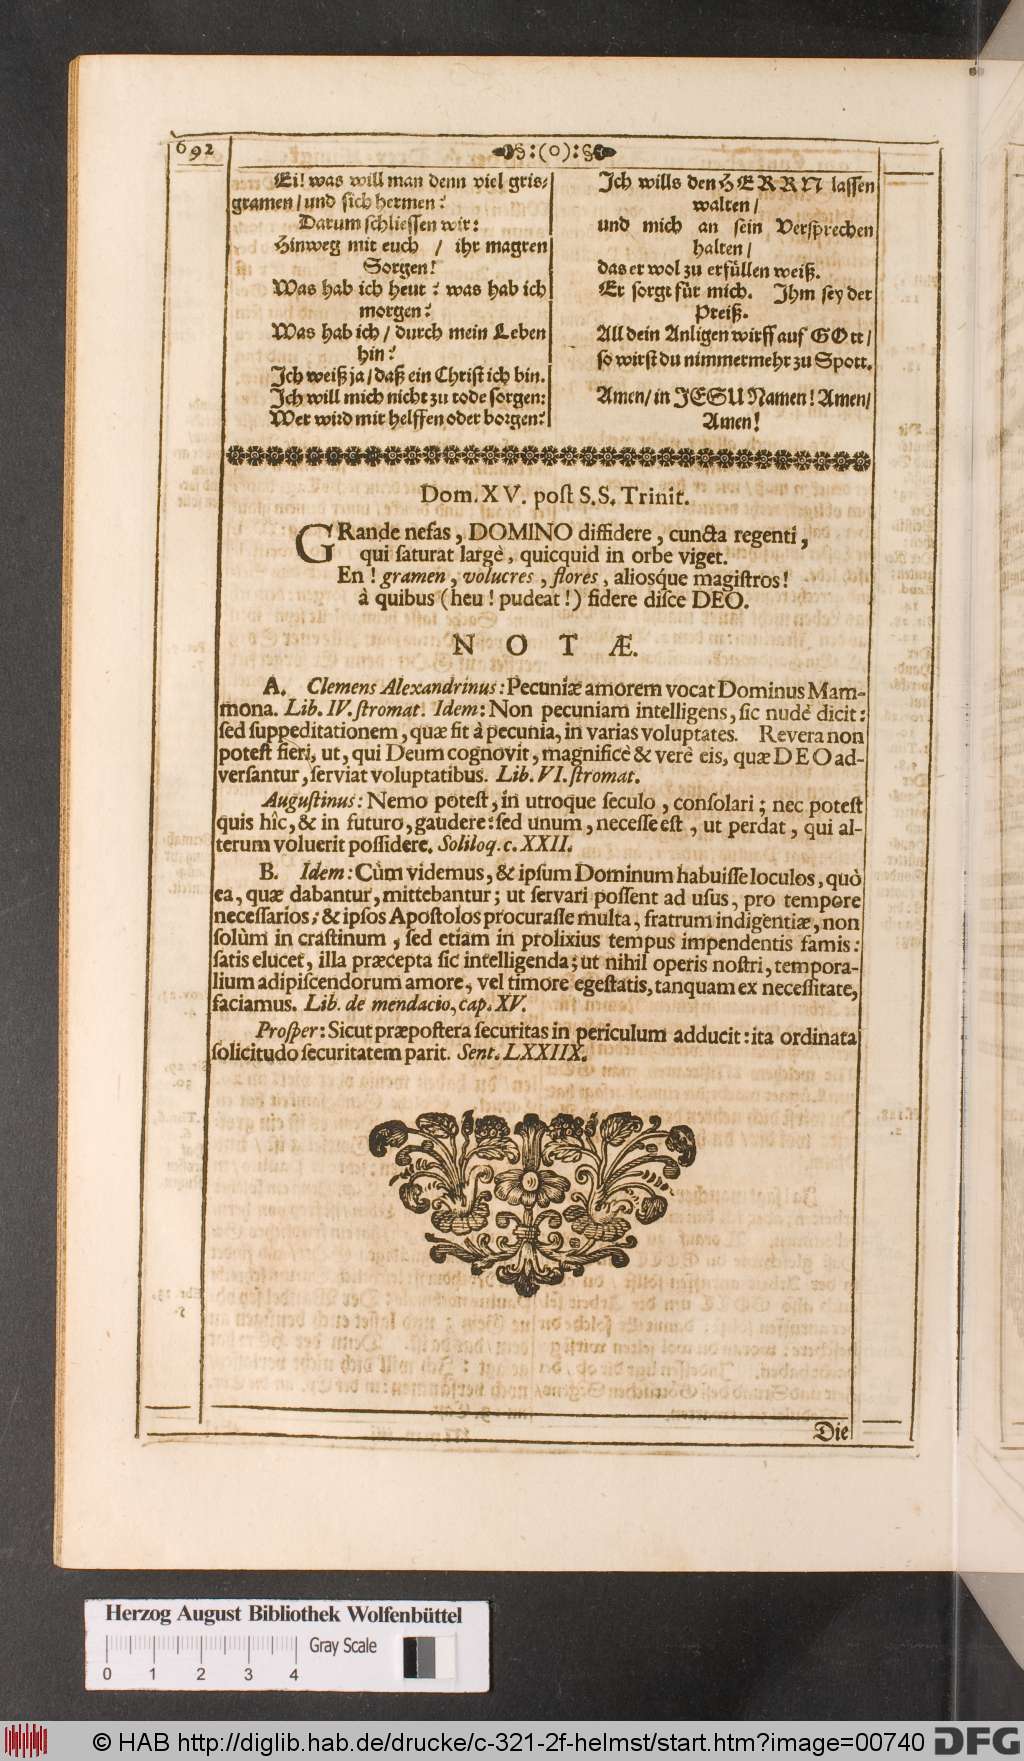 692
:(o):
Ei! was will man denn viel gris-
gramen/und sich hermen?
Darum schliessen wir:
Hinweg mit euch / ihr magren
Sorgen!
Was hab ich heut? was hab ich
morgen?
Was hab ich/ durch mein Leben
hin?
Jch weiß ja/daß ein Christ ich bin.
Jch will mich nicht zu tode sorgen:
Wer wird mir helffen oder borgen?
Jch wills den HERRN lassen
walten/
und mich an sein Versprechen
halten/
das er wol zu erfüllen weiß.
Er sorgt für mich. Jhm sey der
Preiß.
All dein Anligen wirff auf GOtt/
so wirst du nimmermehr zu Spott.
Amen/ in JESU Namen! Amen/
Amen!
Dom. XV. post S.S. Trinit.
GRande nefas, DOMINO diffidere, cuncta regenti,
qui saturat largè, quicquid in orbe viget.
En! gramen, volucres, flores, aliosq́ue magistros!
à quibus (heu! pudeat!) fidere disce DEO.
NOTÆ.
A. Clemens Alexandrinus: Pecuniæ amorem vocat Dominus Mam-
mona. Lib. IV. stromat. Idem: Non pecuniam intelligens, sic nudè dicit:
sed suppeditationem, quæ fit à pecunia, in varias voluptates. Revera non
potest fieri, ut, qui Deum cognovit, magnificè & verè eis, quæ DEO ad-
versantur, serviat voluptatibus. Lib. VI. stromat.
Augustinus: Nemo potest, in utroque seculo, consolari; nec potest
quis hîc, & in futuro, gaudere: sed unum, necesse est, ut perdat, qui al-
terum voluerit possidere. Soliloq. c. XXII.
B. Idem: Cùm videmus, & ipsum Dominum habuisse loculos, quò
ea, quæ dabantur, mittebantur; ut servari possent ad usus, pro tempore
necessarios; & ipsos Apostolos procurasse multa, fratrum indigentiæ, non
solùm in crastinum, sed etiam in prolixius tempus impendentis famis:
satis elucet, illa præcepta sic intelligenda; ut nihil operis nostri, tempora-
lium adipiscendorum amore, vel timore egestatis, tanquam ex necessitate,
faciamus. Lib. de mendacio, cap. XV.
Prosper: Sicut præpostera securitas in periculum adducit: ita ordinata
solicitudo securitatem parit. Sent. LXXIIX.
Die
Herzog August Bibliothek Wolfenbüttel
Gray Scale
0 1 2 3 4
© HAB http://diglib.hab.de/drucke/c-321-2f-helmst/start.htm?image=00740
DFG